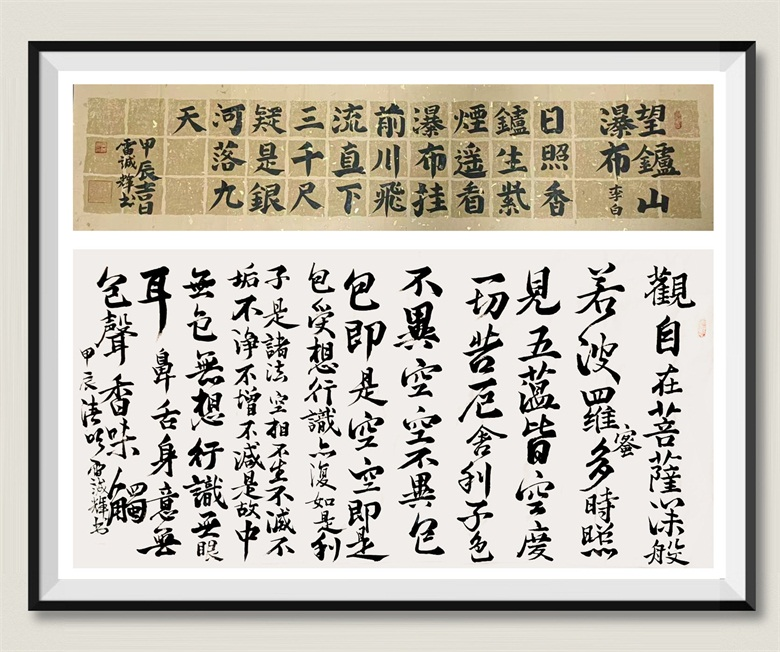 望鑪山
瀑布
李白
日照香
鑪生紫
煙遥看
瀑布挂
前川飛
流直下
三千尺
疑是銀
河落九
天
甲辰吉日
雷誠輝书
觀自在菩薩深般
若波羅蜜多時照
見五蕴皆空度
一切苦厄舍利子色
不異空空不異色
色即是空空即是
色受想行識亦復如是利
子是諸法空相不生不滅不
垢不净不增不減是故中
無色無想行識無眼
耳鼻舌身意無
色聲香味觸
甲辰
雷誠輝书